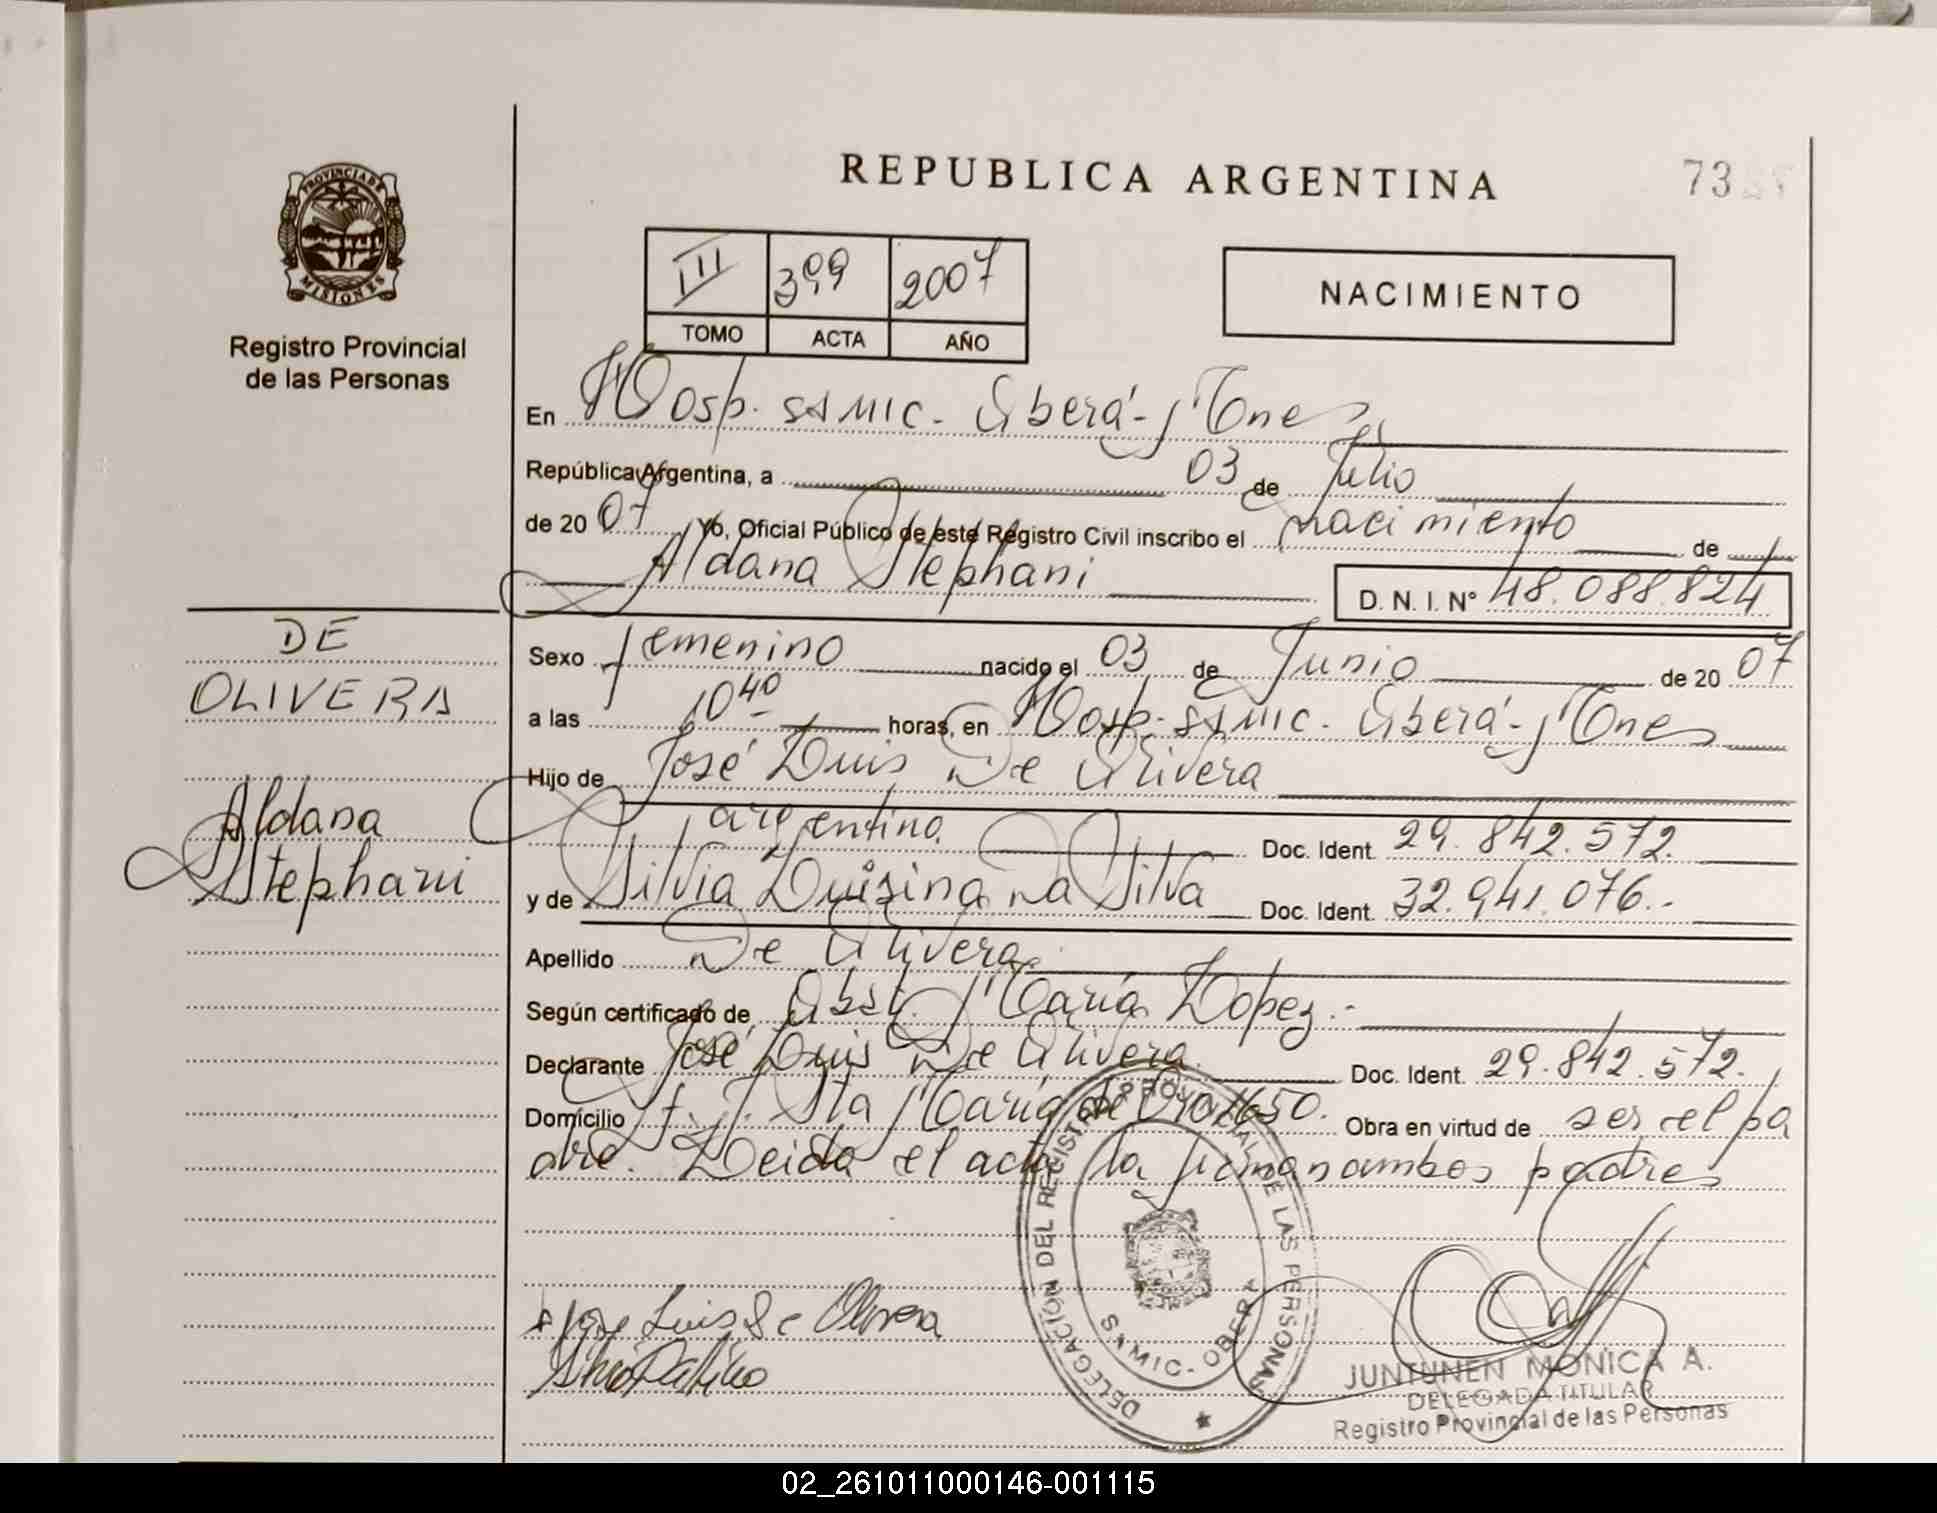 REPUBLICA ARGENTINA
73
PROVINCIA DE
MISIONES
Registro Provincial
de las Personas
III 399 2007
TOMO ACTA AÑO
NACIMIENTO
En Hosp. SAMIC. Oberá - Mnes
República Argentina, a 03 de Julio
de 2007 Yo, Oficial Público de este Registro Civil inscribo el nacimiento de
Aldana Stephani D. N. I. N° 48.088.824
DE
OLIVERA
Aldana
Stephani
Sexo femenino nacido el 03 de Junio de 2007
a las 10 40 horas, en Hosp. SAMIC. Oberá - Mnes
Hijo de José Luis De Olivera
argentino Doc. Ident. 29.842.572.
y de Silvia Da Silva Doc. Ident. 32.941.076.-
Apellido De Olivera
Según certificado de Obst. María Lopez.-
Declarante José Luis De Olivera Doc. Ident. 29.842.572.
Domicilio Sta María de Oro 1650. Obra en virtud de ser el pa
dre. Leida el acta la firman ambos padres
Jose Luis De Olivera
DELEGACIÓN DEL REGISTRO PROVINCIAL DE LAS PERSONAS
SAMIC - OBERA
JUNTUNEN MONICA A.
DELEGADA TITULAR
Registro Provincial de las Personas
02_261011000146-001115